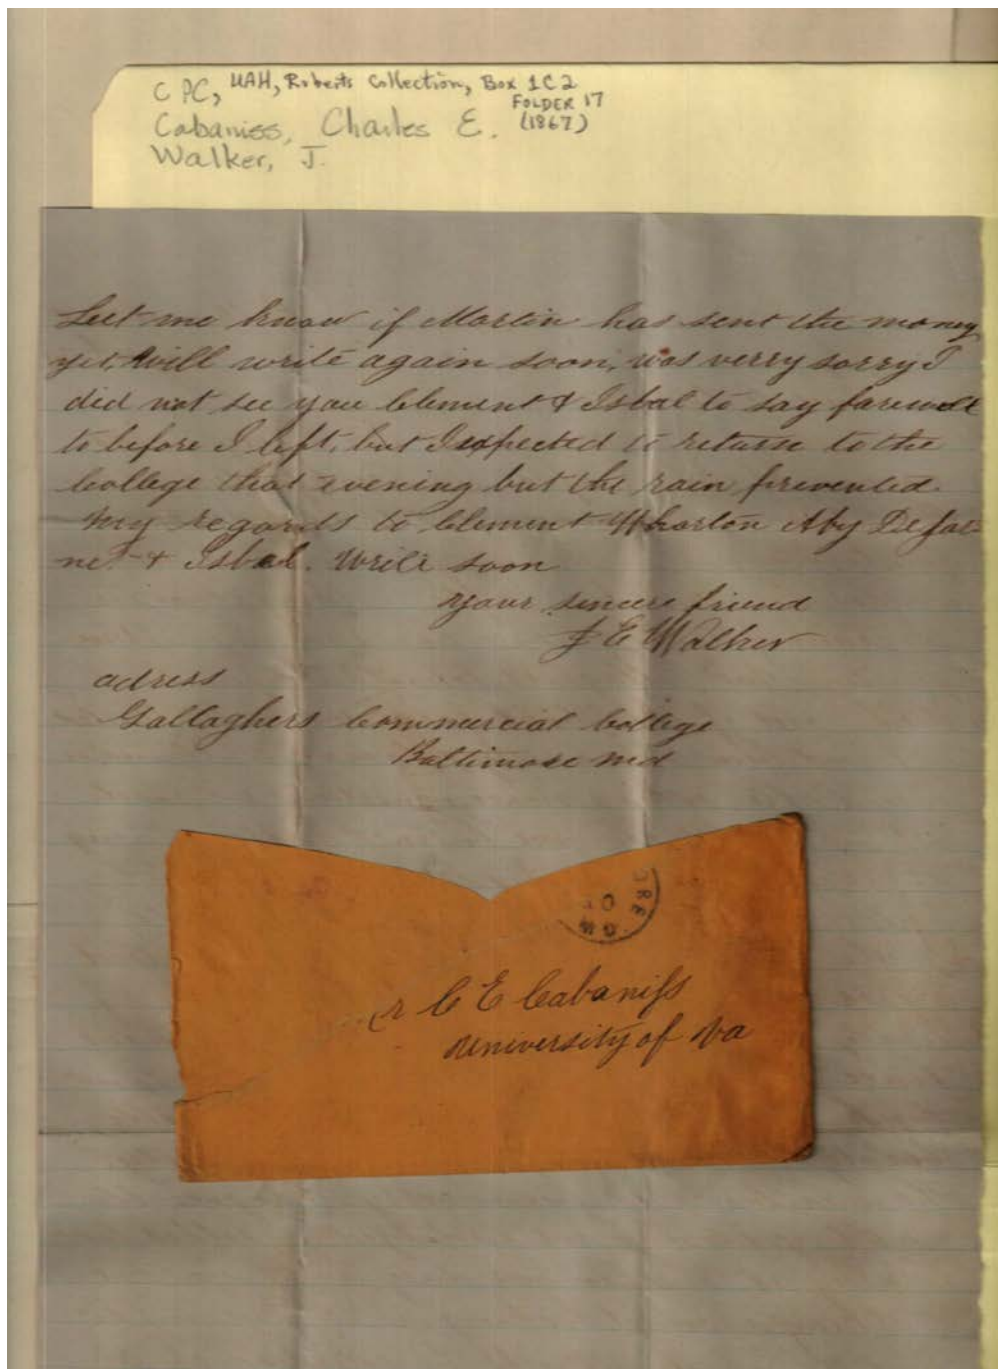 C PC, UAH, Roberts Collection, Box 1C2
FOLDER 17
Cabaniss, Charles E. (1867)
Walker, J.
Let me know if Martin has sent the money
yet, Will write again soon, was verry sorry I
did not see you Clement & Isbal to say farewell
to before I left, but I expected to return to the
College that evening but the rain prevented
My regards to Clement Wharton Aby Dejar-
net & Isbal. Write soon
Your sincere friend
J E Walker
adress
Gallaghers Commercial College
Baltimore Md
C E Cabaniss
University of Va